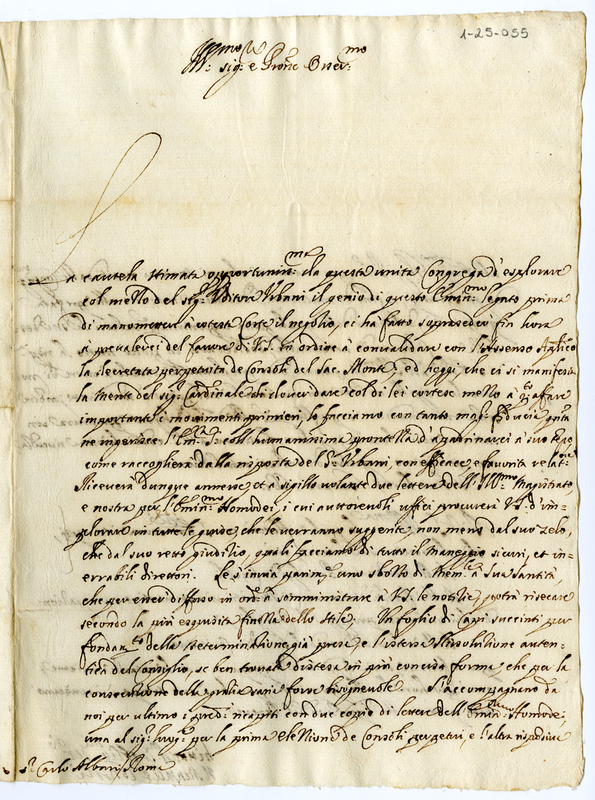 1-25-055
Ill.mo Sig.re e Prone Osser.mo
La cautela stimata opportuniss.ma da questa unita Congrega d'esplorare
col mezzo del Sig.r Uditore Urbani il genio di questo Emin.mo Legato prima
di manometter à cotesta Corte il negotio, ci hà fatto sopraseder fin hora
à prevalerci del favore di V.S. in ordine à convalidare con l'Assenso Ap.lico
la decretata perpetuità de Consoli del Sac. Monte; ed hoggi, che ci si manifesta
la mente del sig.r Cardinale di dover dare col di lei cortese mezzo à q.to affare
importante i movimenti primieri, lo facciamo con tanto mag.r fiducia, q.nta
ne ingerisce l'Em. S. coll'humanissima prontezza d'
come raccoglierà dalla risposta del S.r Urbani, con efficace, e favorita
Riceverà dunque annesse, et à sigillo volante due lettere dell'Ill.mo Magistrato,
e nostra per l'Emin.mo Homodei, i cui autorevoli uffici procurerà V.S. d'im-
plorare in tutte le guise, che le verranno suggerite non meno dal suo zelo,
che dal suo retto giudizio, quali facciamo di tutto il maneggio sicuri, et in-
errabili direttori. Le s'invia parim.te uno sbozzo di mem.le à Sua Santità,
che per esser diffuso in ord.e à somministrare à V.S. le notizie, potrà risecare
secondo la più esquisita finezza dello stile; Un foglio di Capi succinti per
fondam.to della determinatione già presa, e l'istessa Risolutione auten-
tica del Consiglio, se ben trovata distesa in più concisa forma, che per la
consecutione della gratia saria forse bisognevole. S'accompagnano da
noi per ultimo i pred.i ricapiti con due copie di lettere dell'Emin.mo Homodei,
una al sig.r per la prima elettione de Consoli perpetui, e l'altra risponsiva
S.r Carlo Albani Roma